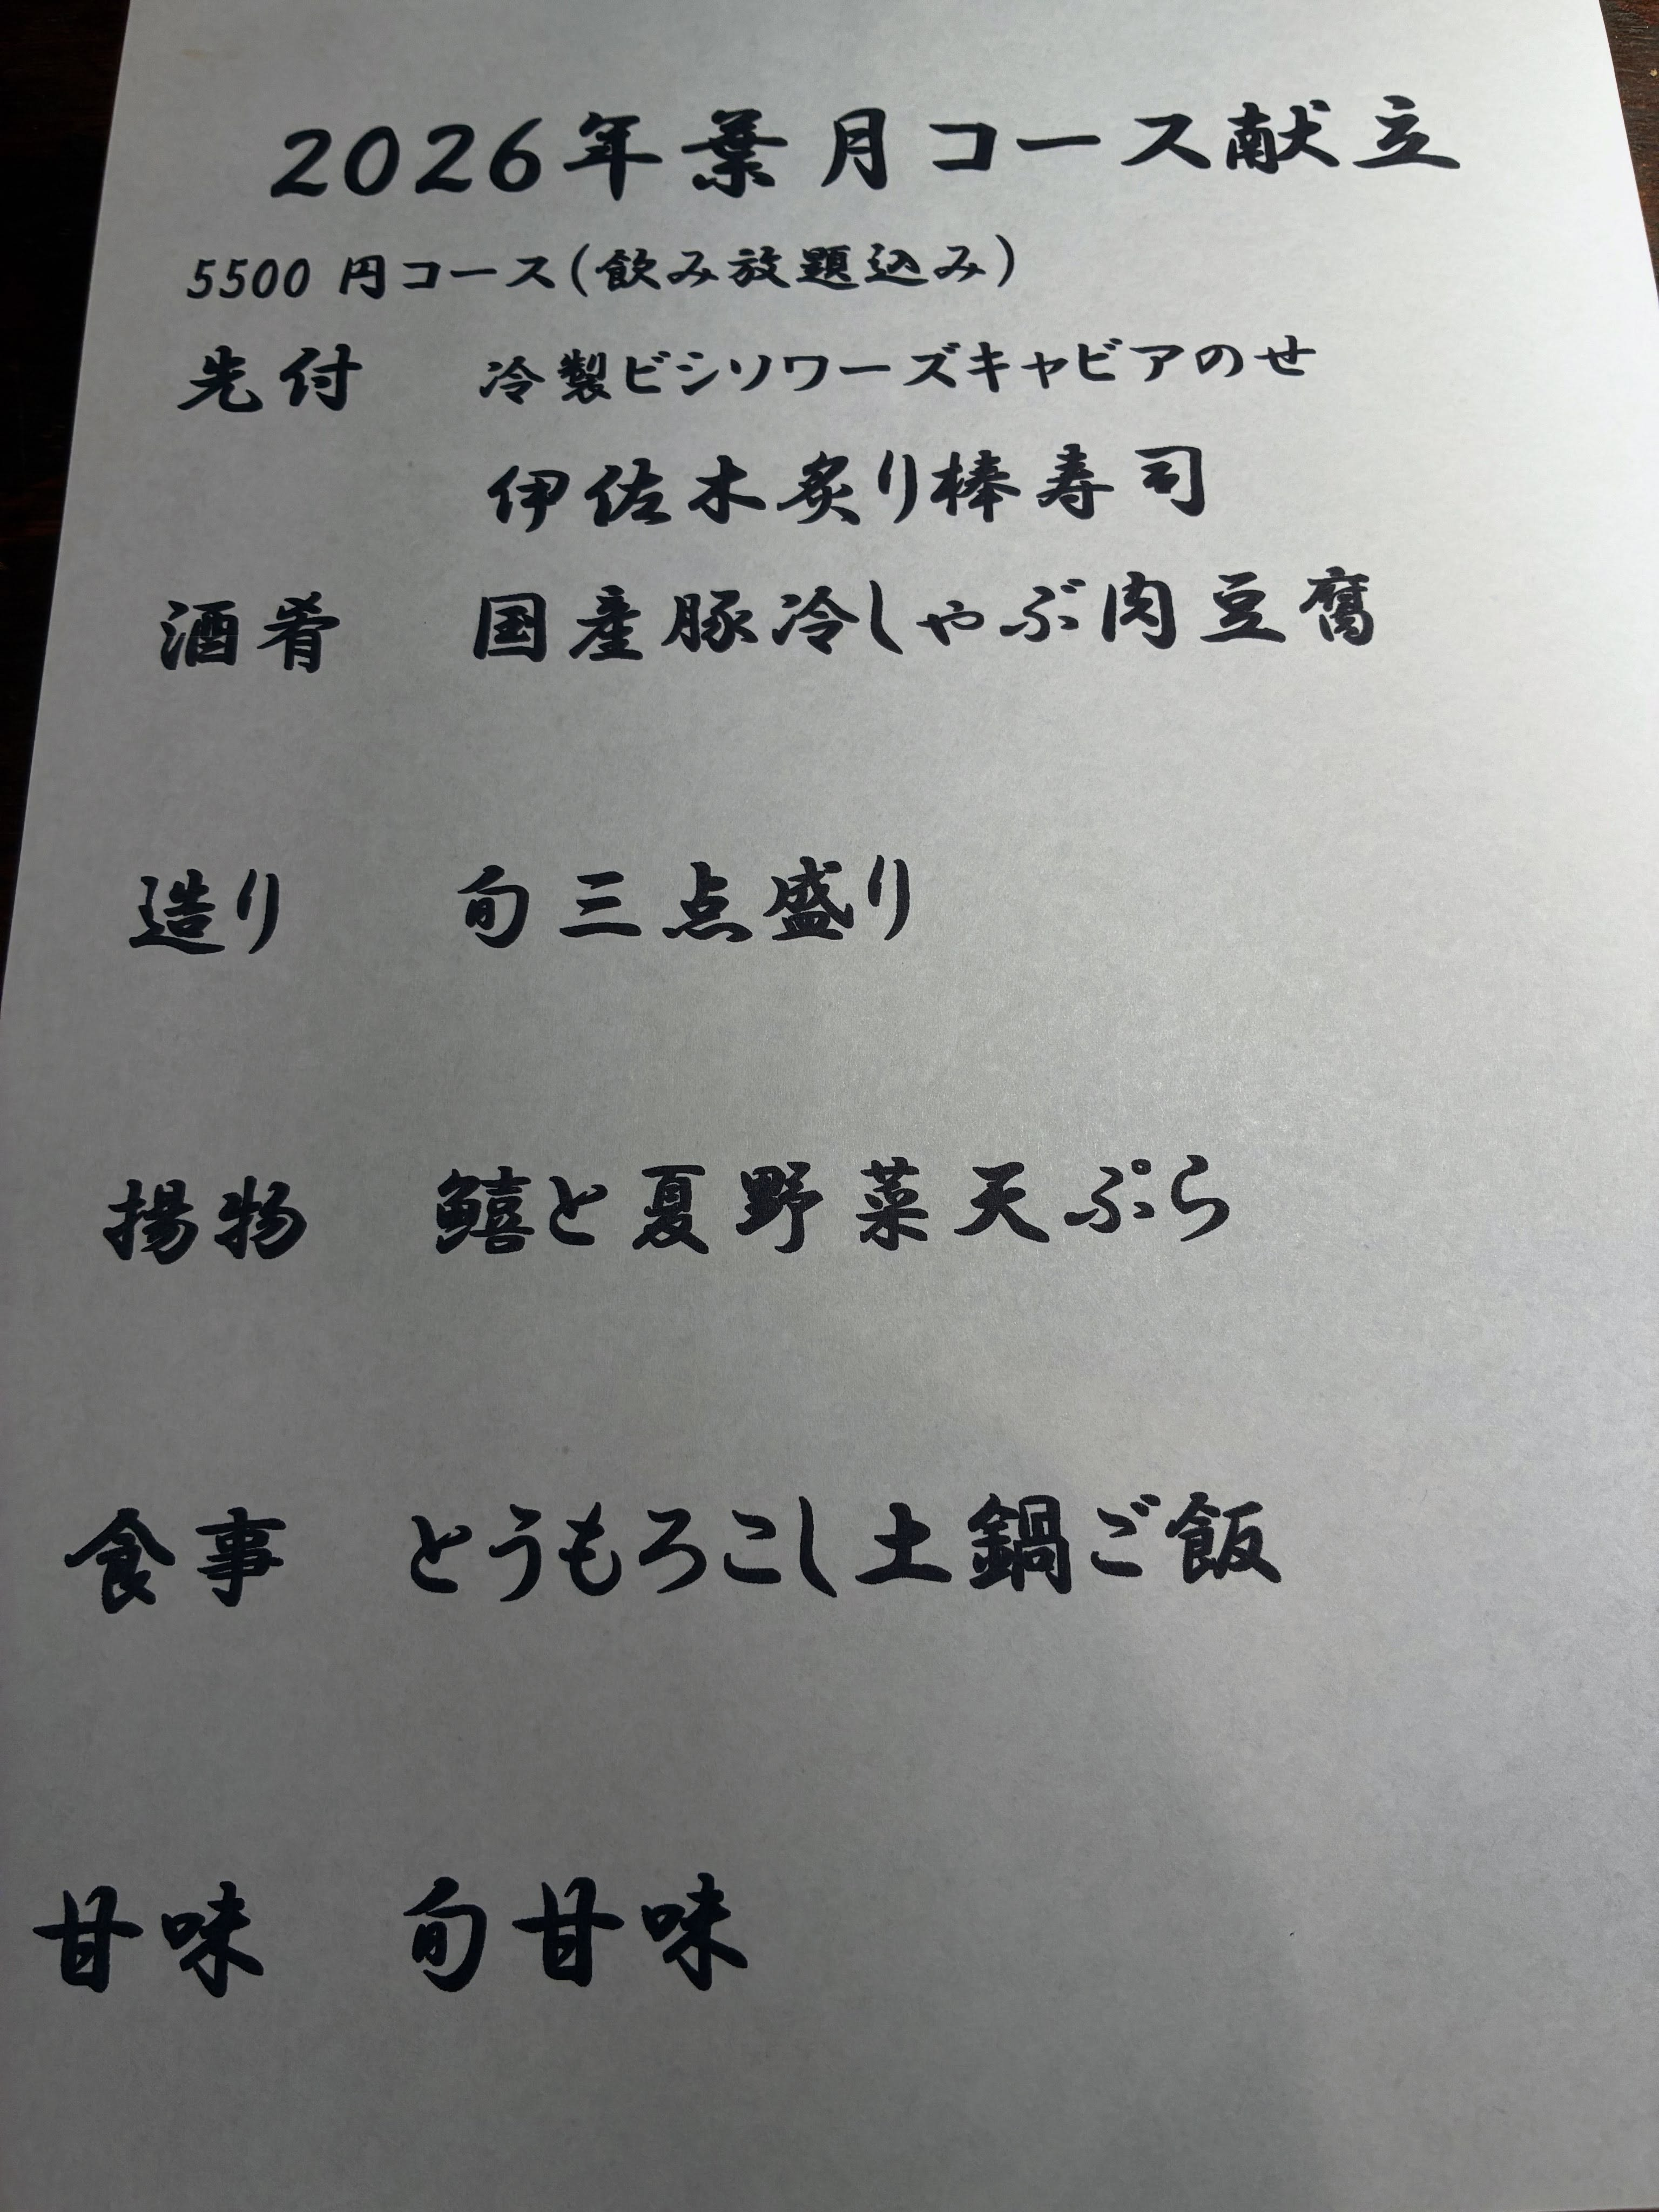 2026年葉月コース献立
5500 円コース(飲み放題込み)
先付 冷製ビシソワーズキャビアのせ
伊佐木炙り棒寿司
酒肴 国産豚冷しゃぶ肉豆腐
造り 旬三点盛り
揚物 鱚と夏野菜天ぷら
食事 とうもろこし土鍋ご飯
甘味 旬甘味